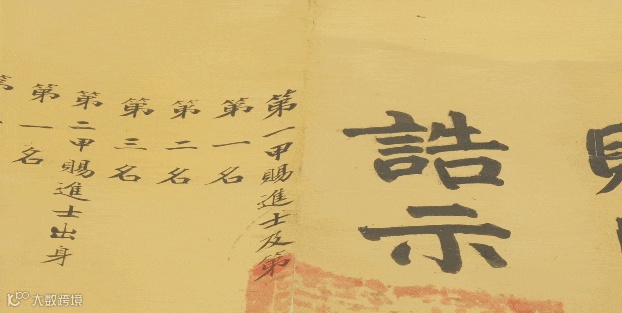 誥示
第一甲賜進士及第
第一名
第二名
第三名
第二甲賜進士出身
第一名
大数跨境